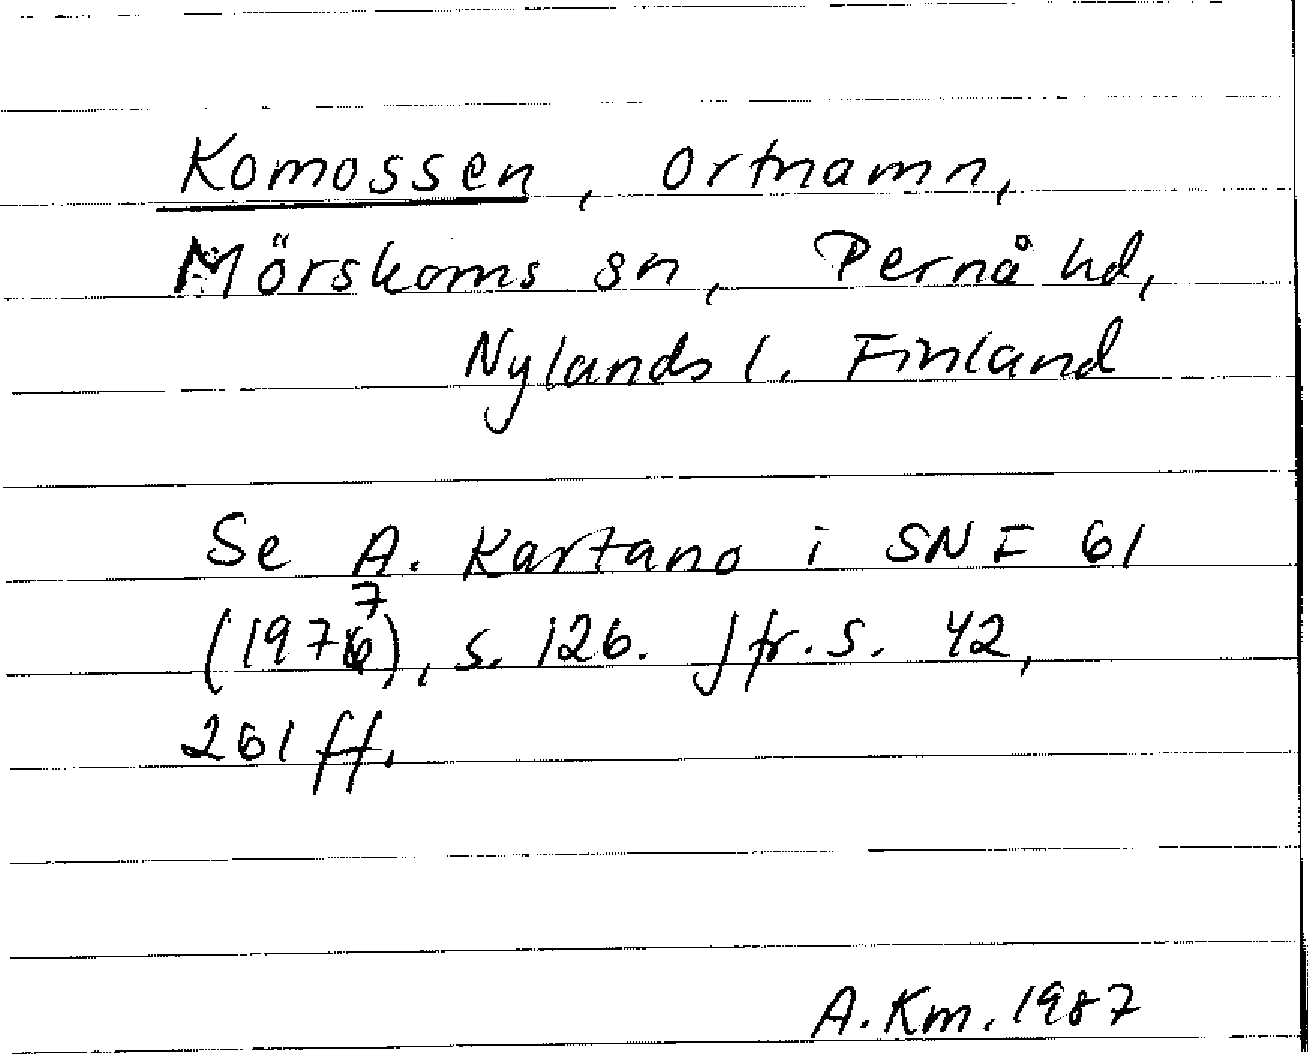 Komossen, ortnamn,
Mörskoms sn, Pernå hd,
Nylands l. Finland
Se A. Kartano i SNF 61
(1977), s. 126. Jfr. s. 42,
261 ff.
A. Km. 1987